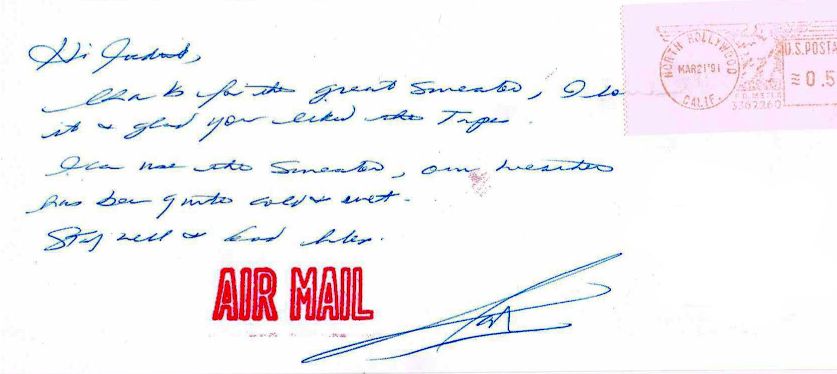 Hi Judith,
Thanks for the great Sweater, I love
it & glad you liked the Tapes.
I can use the Sweater, our weather
has been quite cold & wet.
Stay well & God bless.
AIR MAIL
NORTH HOLLYWOOD
MAR21'91
CALIF.
U.S.POSTA
0.5
P.B. METER